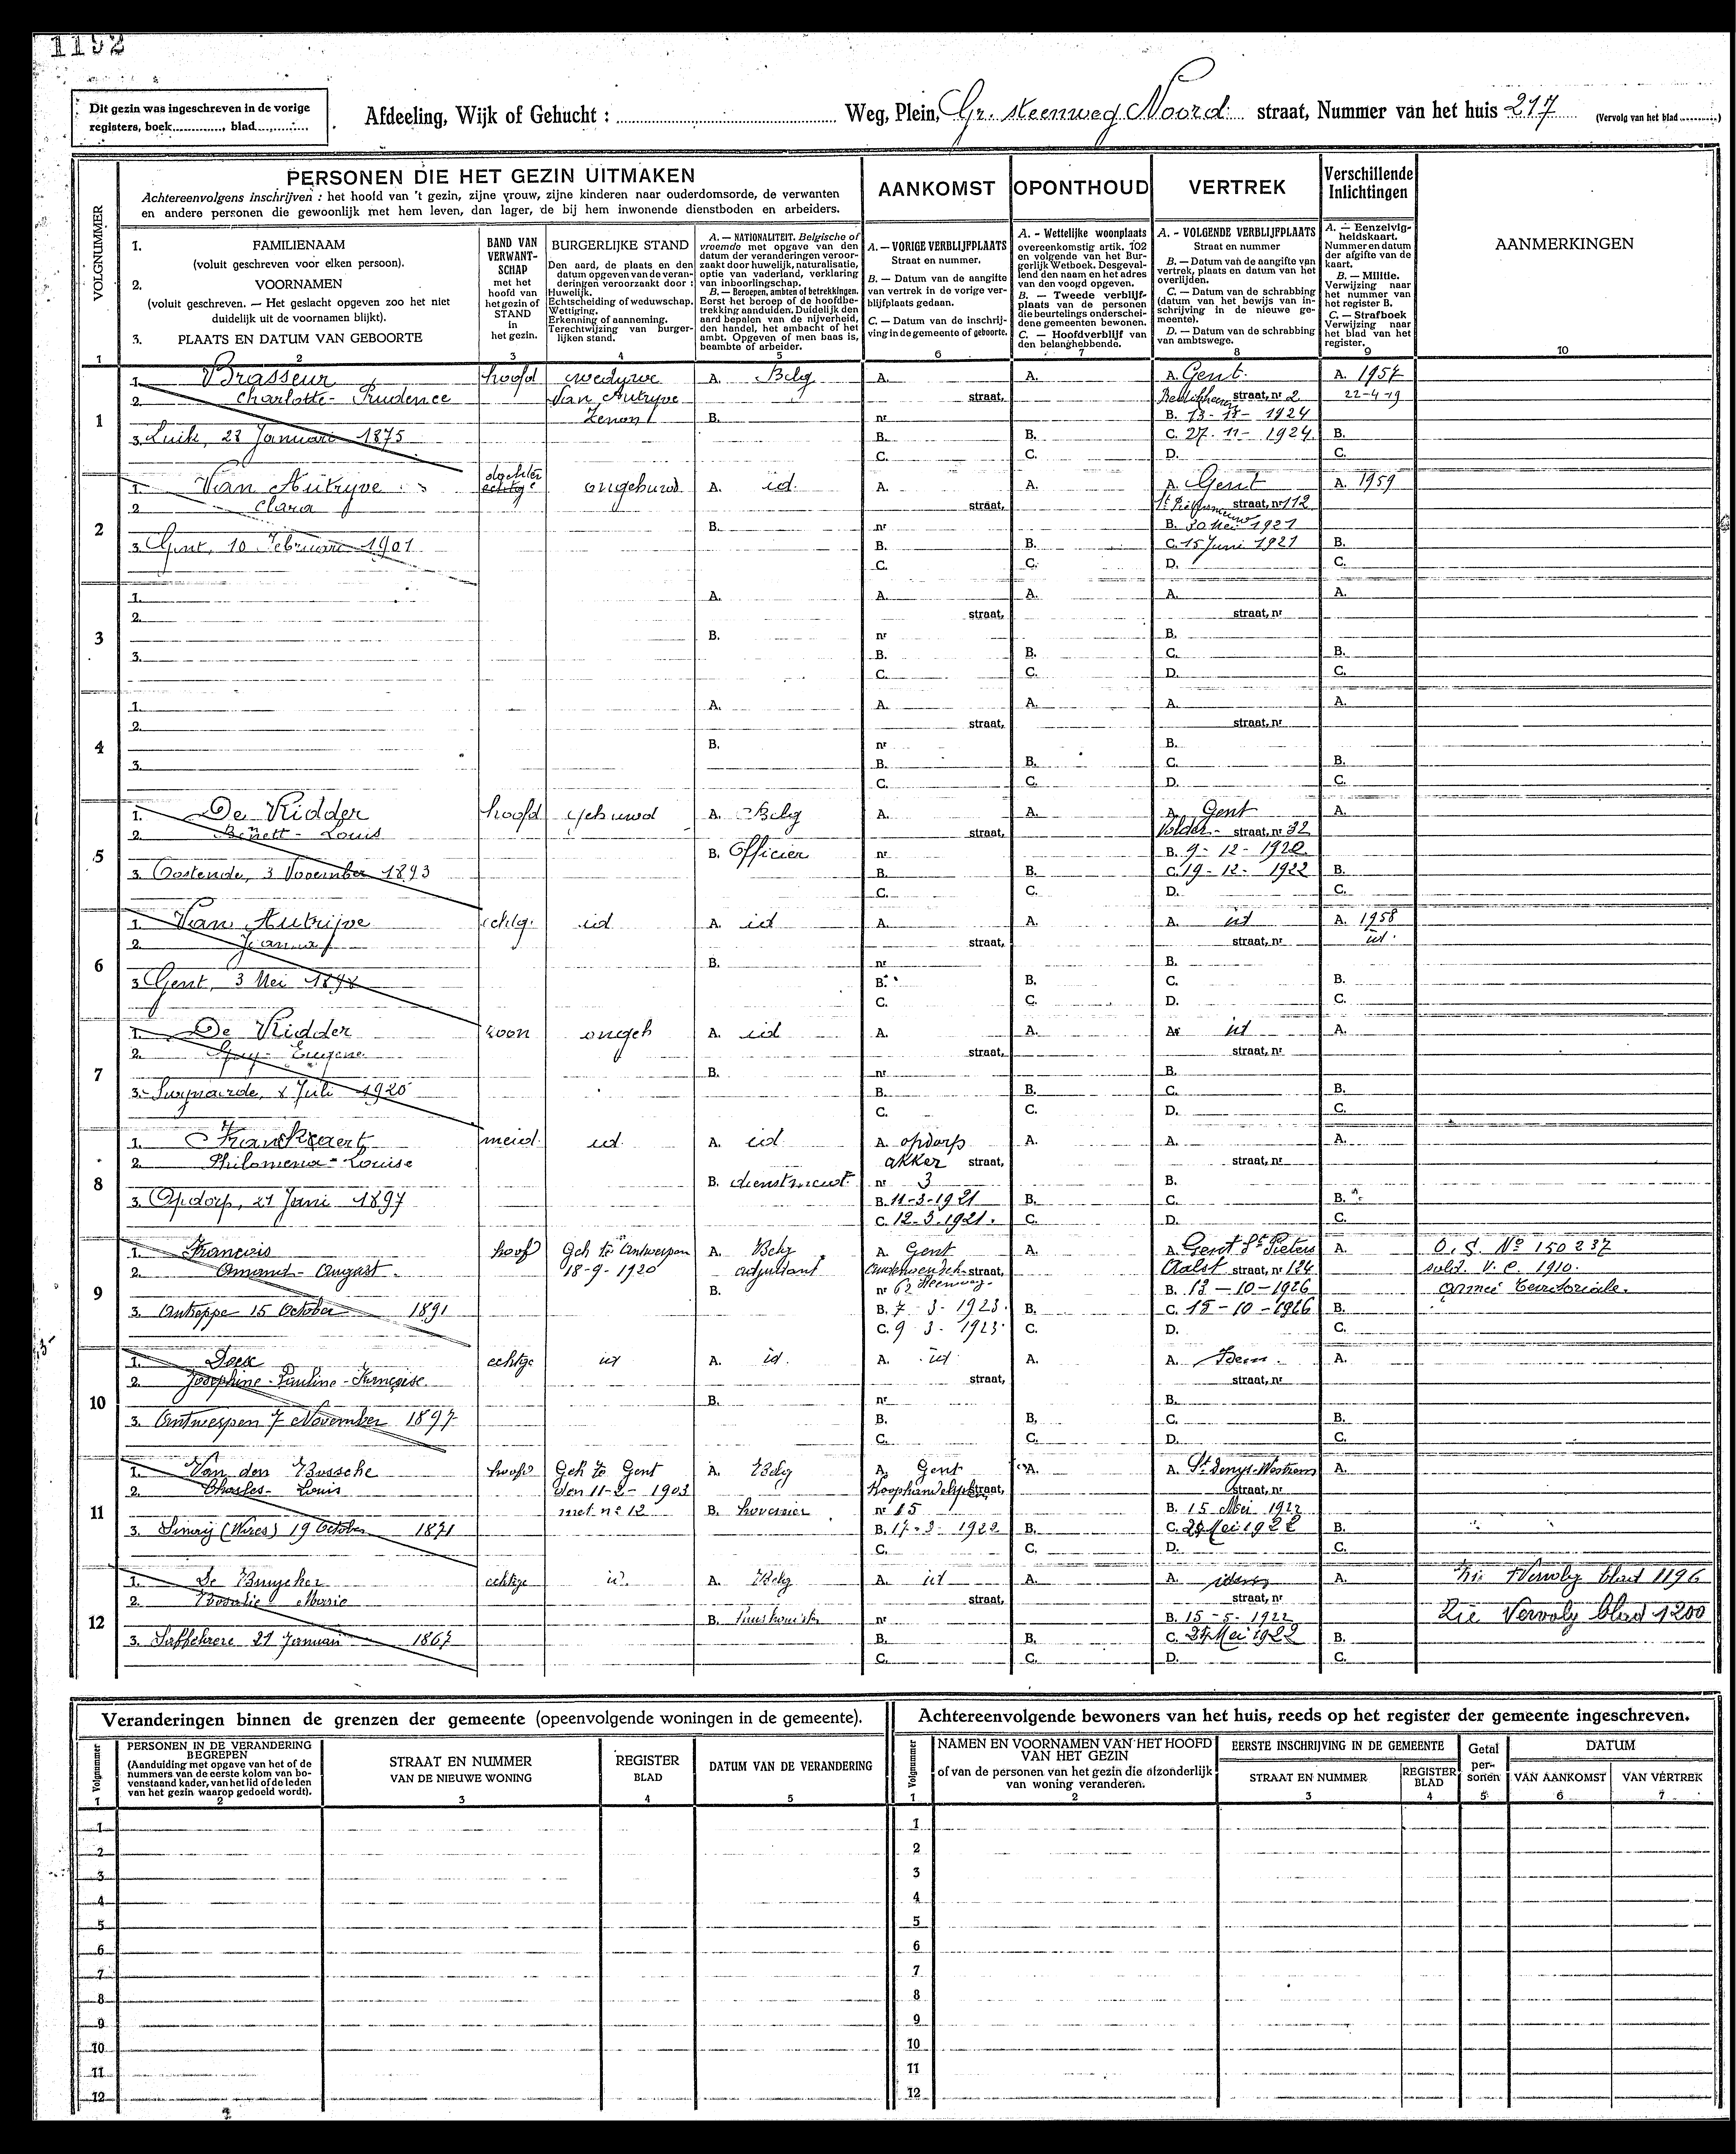 1192
Dit gezin was ingeschreven in de vorige
registers, boek............, blad............
Afdeeling, Wijk of Gehucht : ............ Weg, Plein, Gr. steenweg Noord straat, Nummer van het huis 217 (Vervolg van het blad ..........)
PERSONEN DIE HET GEZIN UITMAKEN
Achtereenvolgens inschrijven : het hoofd van 't gezin, zijne vrouw, zijne kinderen naar ouderdomsorde, de verwanten
en andere personen die gewoonlijk met hem leven, dan lager, de bij hem inwonende dienstboden en arbeiders.
AANKOMST
OPONTHOUD
VERTREK
Verschillende
Inlichtingen
VOLGNUMMER
1
1. FAMILIENAAM
(voluit geschreven voor elken persoon).
2. VOORNAMEN
(voluit geschreven. — Het geslacht opgeven zoo het niet
duidelijk uit de voornamen blijkt).
3. PLAATS EN DATUM VAN GEBOORTE
2
BAND VAN
VERWANT-
SCHAP
met het
hoofd van
het gezin of
STAND
in
het gezin.
3
BURGERLIJKE STAND
Den aard, de plaats en den
datum opgeven van de veran-
deringen veroorzaakt door :
Huwelijk.
Echtscheiding of weduwschap.
Wettiging.
Erkenning of aanneming.
Terechtwijzing van burger-
lijken stand.
4
A. — NATIONALITEIT. Belgische of
vreemde met opgave van den
datum der veranderingen veroor-
zaakt door huwelijk, naturalisatie,
optie van vaderland, verklaring
van inboorlingschap.
B. — Beroepen, ambten of betrekkingen.
Eerst het beroep of de hoofdbe-
trekking aanduiden. Duidelijk den
aard bepalen van de nijverheid,
den handel, het ambacht of het
ambt. Opgeven of men baas is,
beambte of arbeider.
5
A. — VORIGE VERBLIJFPLAATS
Straat en nummer.
B. — Datum van de aangifte
van vertrek in de vorige ver-
blijfplaats gedaan.
C. — Datum van de inschrij-
ving in de gemeente of geboorte.
6
A. - Wettelijke woonplaats
overeenkomstig artik. 102
en volgende van het Bur-
gerlijk Wetboek. Desgeval-
lend den naam en het adres
van den voogd opgeven.
B. — Tweede verblijf-
plaats van de personen
die beurtelings onderschei-
dene gemeenten bewonen.
C. — Hoofdverblijf van
den belanghebbende.
7
A. - VOLGENDE VERBLIJFPLAATS
Straat en nummer
B. — Datum van de aangifte van
vertrek, plaats en datum van het
overlijden.
C. — Datum van de schrabbing
(datum van het bewijs van in-
schrijving in de nieuwe ge-
meente).
D. — Datum van de schrabbing
van ambtswege.
8
A. — Eenzelvig-
heidskaart.
Nummer en datum
der afgifte van de
kaart.
B. — Militie.
Verwijzing naar
het nummer van
het register B.
C. — Strafboek
Verwijzing naar
het blad van het
register.
9
AANMERKINGEN
10
1
1. Brasseur hoofd weduwe A. Belg A. A. A. Gent. A. 1957
2. Charlotte - Prudence Van Autryve straat, straat, nr 2 22-4-19
Zenon B. nr B. 13-11-1924
3. Luik, 28 Januari 1875 B. B. C. 27-11-1924 B.
C. C. D. C.
2
1. Van Autryve dochter ongehuwd A. id. A. A. A. Gent A. 1959
2. Clara straat, straat, nr 112
B. nr B. 30 Mei 1921
3. Gent, 10 Februari 1901 B. B. C. 15 Juni 1921 B.
C. C. D. C.
3
1. A. A. A. A. A.
2. straat, straat, nr
B. nr B.
3. B. B. C. B.
C. C. D. C.
4
1. A. A. A. A. A.
2. straat, straat, nr
B. nr B.
3. B. B. C. B.
C. C. D. C.
5
1. De Ridder hoofd gehuwd A. Belg A. A. A. Gent A.
2. Benett - Louis straat, Volder- straat, nr 32
B. Officier nr B. 9-12-1920
3. Oostende, 3 November 1893 B. B. C. 19-12-1922 B.
C. C. D. C.
6
1. Van Autrijve echtg. id A. id A. A. A. id A. 1958
2. Jeanna straat, straat, nr id.
B. nr B.
3. Gent, 3 Mei B. B. C. B.
C. C. D. C.
7
1. De Ridder zoon ongeh A. id A. A. A. id A.
2. Guy - Eugene straat, straat, nr
B. nr B.
3. Juli 1920 B. B. C. B.
C. C. D. C.
8
1. meid. id. A. id. A. opdorp A. A. A.
2. Philomena - Louise akker straat, straat, nr
B. dienstmeid nr 3 B.
3. Opdorp, 21 Juni 1897 B. 11-3-1921 B. C. B.
C. 12-3-1921. C. D. C.
9
1. Francois hoofd Geh te Antwerpen A. Belg A. Gent A. A. Gent St Pieters A. O.S. No 150237
2. Amand - August. 18-9-1920 adjudant straat, Aalst straat, nr 124 sold. V.C. 1910.
B. nr 62 Steenweg. B. 13-10-1926 armée territoriale.
3. 15 October 1891 B. 7-3-1923. B. C. 15-10-1926 B.
C. 9-3-1923. C. D. C.
10
1. echtge id A. id. A. id A. A. Idem. A.
2. Josephine - Pauline - Françoise. straat, straat, nr
B. nr B.
3. Antwerpen 7 November 1897 B. B. C. B.
C. C. D. C.
11
1. Van den Bossche hoofd Geh te Gent A. Belg A. Gent A. A. St Denys-Westrem A.
2. Charles - Louis den 11-2-1903 Koophandelplaats straat, straat, nr
met no 12 B. hovenier nr 15 B. 15 Mei 1922
3. 19 October 1871 B. 17-3-1922 B. C. Mei 1922 B.
C. C. D. C.
12
1. De Bruycker echtge id. A. Belg A. id A. A. idem A. Zie Vervolg blad 1196
2. Rosalie Marie straat, straat, nr
B. nr B. 15-5-1922 Zie Vervolg blad 1200
3. 21 Januari 1867 B. B. C. Mei 1922 B.
C. C. D. C.
Veranderingen binnen de grenzen der gemeente (opeenvolgende woningen in de gemeente).
Volgnummer
1
PERSONEN IN DE VERANDERING
BEGREPEN
(Aanduiding met opgave van het of de
nummers van de eerste kolom van bo-
venstaand kader, van het lid of de leden
van het gezin waarop gedoeld wordt).
2
STRAAT EN NUMMER
VAN DE NIEUWE WONING
3
REGISTER
BLAD
4
DATUM VAN DE VERANDERING
5
1
2
3
4
5
6
7
8
9
10
11
12
Achtereenvolgende bewoners van het huis, reeds op het register der gemeente ingeschreven.
Volgnummer
1
NAMEN EN VOORNAMEN VAN HET HOOFD
VAN HET GEZIN
of van de personen van het gezin die afzonderlijk
van woning veranderen.
2
EERSTE INSCHRIJVING IN DE GEMEENTE
STRAAT EN NUMMER
3
REGISTER
BLAD
4
Getal
per-
sonen
5
DATUM
VAN AANKOMST
6
VAN VERTREK
7
1
2
3
4
5
6
7
8
9
10
11
12